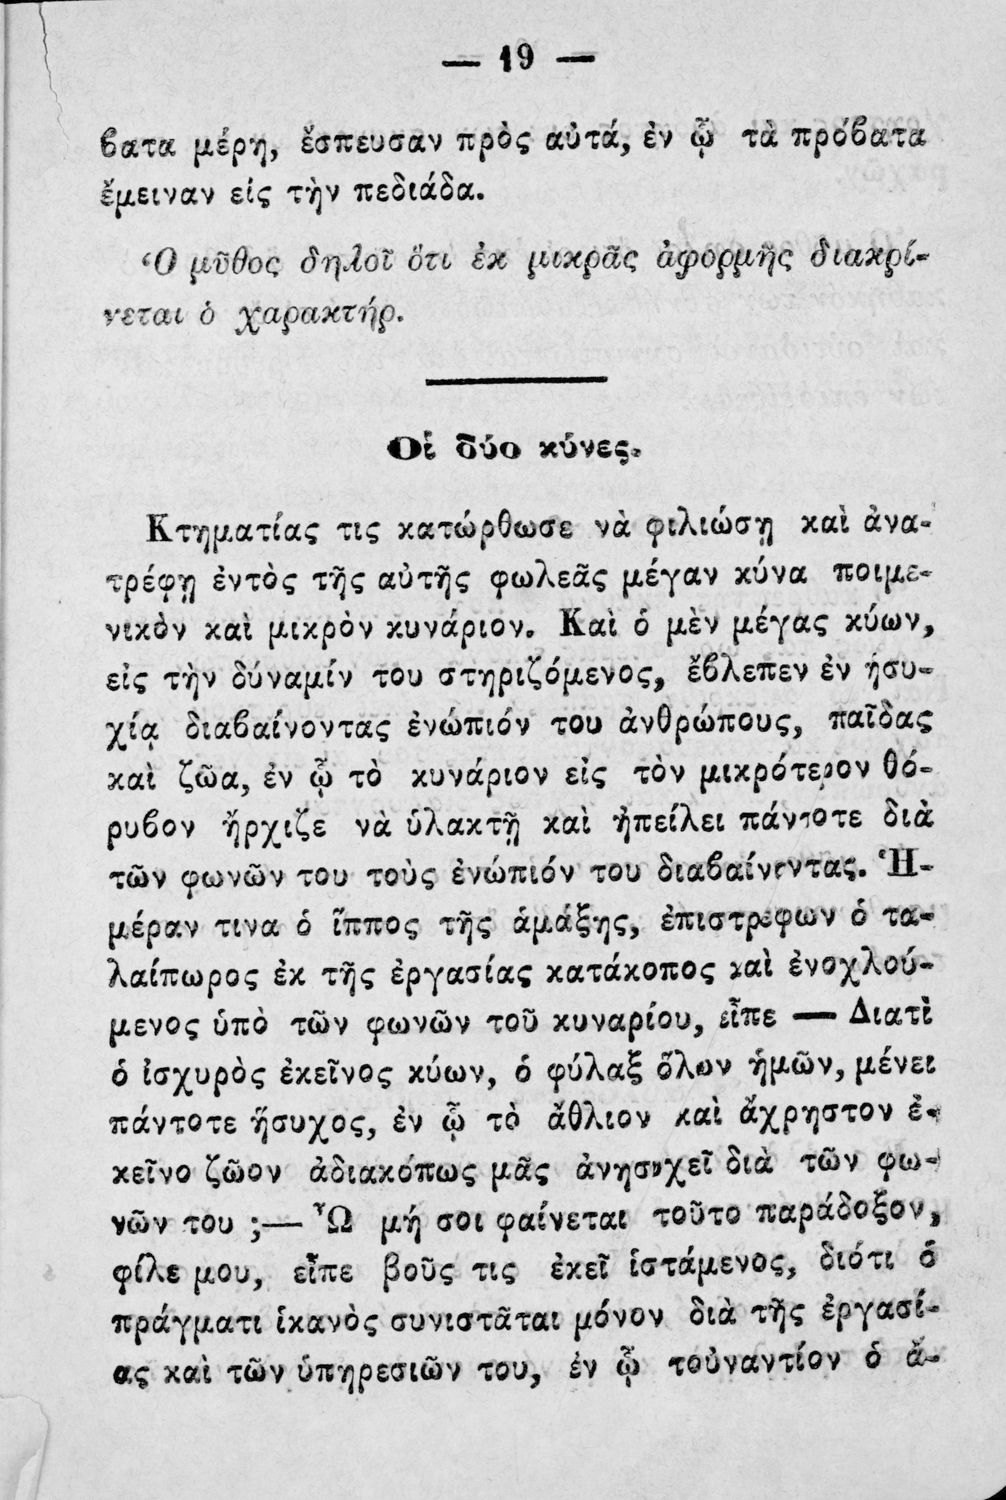 — 19 —
βατα μέρη, ἔσπευσαν πρὸς αὐτά, ἐν ᾧ τὰ πρόβατα
ἔμειναν εἰς τὴν πεδιάδα.
Ὁ μῦθος δηλοῖ ὅτι ἐκ μικρᾶς ἀφορμῆς διακρί-
νεται ὁ χαρακτήρ.
Οἱ δύο κύνες.
Κτηματίας τις κατώρθωσε νὰ φιλιώσῃ καὶ ἀνα-
τρέφῃ ἐντὸς τῆς αὐτῆς φωλεᾶς μέγαν κύνα ποιμε-
νικὸν καὶ μικρὸν κυνάριον. Καὶ ὁ μὲν μέγας κύων,
εἰς τὴν δύναμίν του στηριζόμενος, ἔβλεπεν ἐν ἡσυ-
χίᾳ διαβαίνοντας ἐνώπιόν του ἀνθρώπους, παῖδας
καὶ ζῶα, ἐν ᾧ τὸ κυνάριον εἰς τὸν μικρότερον θό-
ρυβον ἤρχιζε νὰ ὑλακτῇ καὶ ἠπείλει πάντοτε διὰ
τῶν φωνῶν του τοὺς ἐνώπιόν του διαβαίνοντας. Ἡ-
μέραν τινα ὁ ἵππος τῆς ἁμάξης, ἐπιστρέφων ὁ τα-
λαίπωρος ἐκ τῆς ἐργασίας κατάκοπος καὶ ἐνοχλού-
μενος ὑπὸ τῶν φωνῶν τοῦ κυναρίου, εἶπε — Διατὶ
ὁ ἰσχυρὸς ἐκεῖνος κύων, ὁ φύλαξ ὅλων ἡμῶν, μένει
πάντοτε ἥσυχος, ἐν ᾧ τὸ ἄθλιον καὶ ἄχρηστον ἐ-
κεῖνο ζῶον ἀδιακόπως μᾶς ἀνησυχεῖ διὰ τῶν φω-
νῶν του ;— Ὦ μή σοι φαίνεται τοῦτο παράδοξον,
φίλε μου, εἶπε βοῦς τις ἐκεῖ ἱστάμενος, διότι ὁ
πράγματι ἱκανὸς συνιστᾶται μόνον διὰ τῆς ἐργασί-
ας καὶ τῶν ὑπηρεσιῶν του, ἐν ᾧ τοὐναντίον ὁ ἄ-